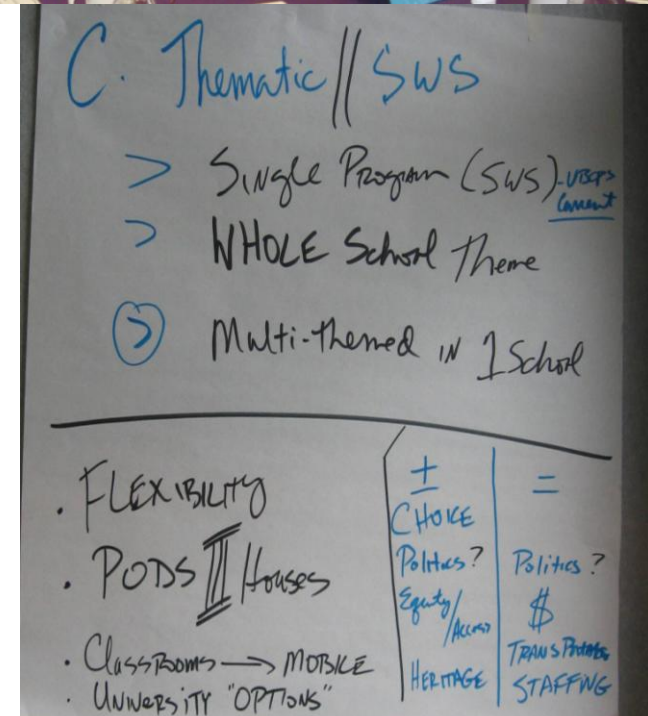 C. Thematic || SWS
> Single Program (SWS) - VBCPS
Current
> WHOLE School Theme
> Multi-themed IN 1 School
. FLEXIBILITY
. PODS Houses
. ClassRooms → MOBILE
. University "OPTIONS"
+
CHOICE
Politics?
Equity/
Access
HERITAGE
=
Politics?
$
TRANSPortation
STAFFING